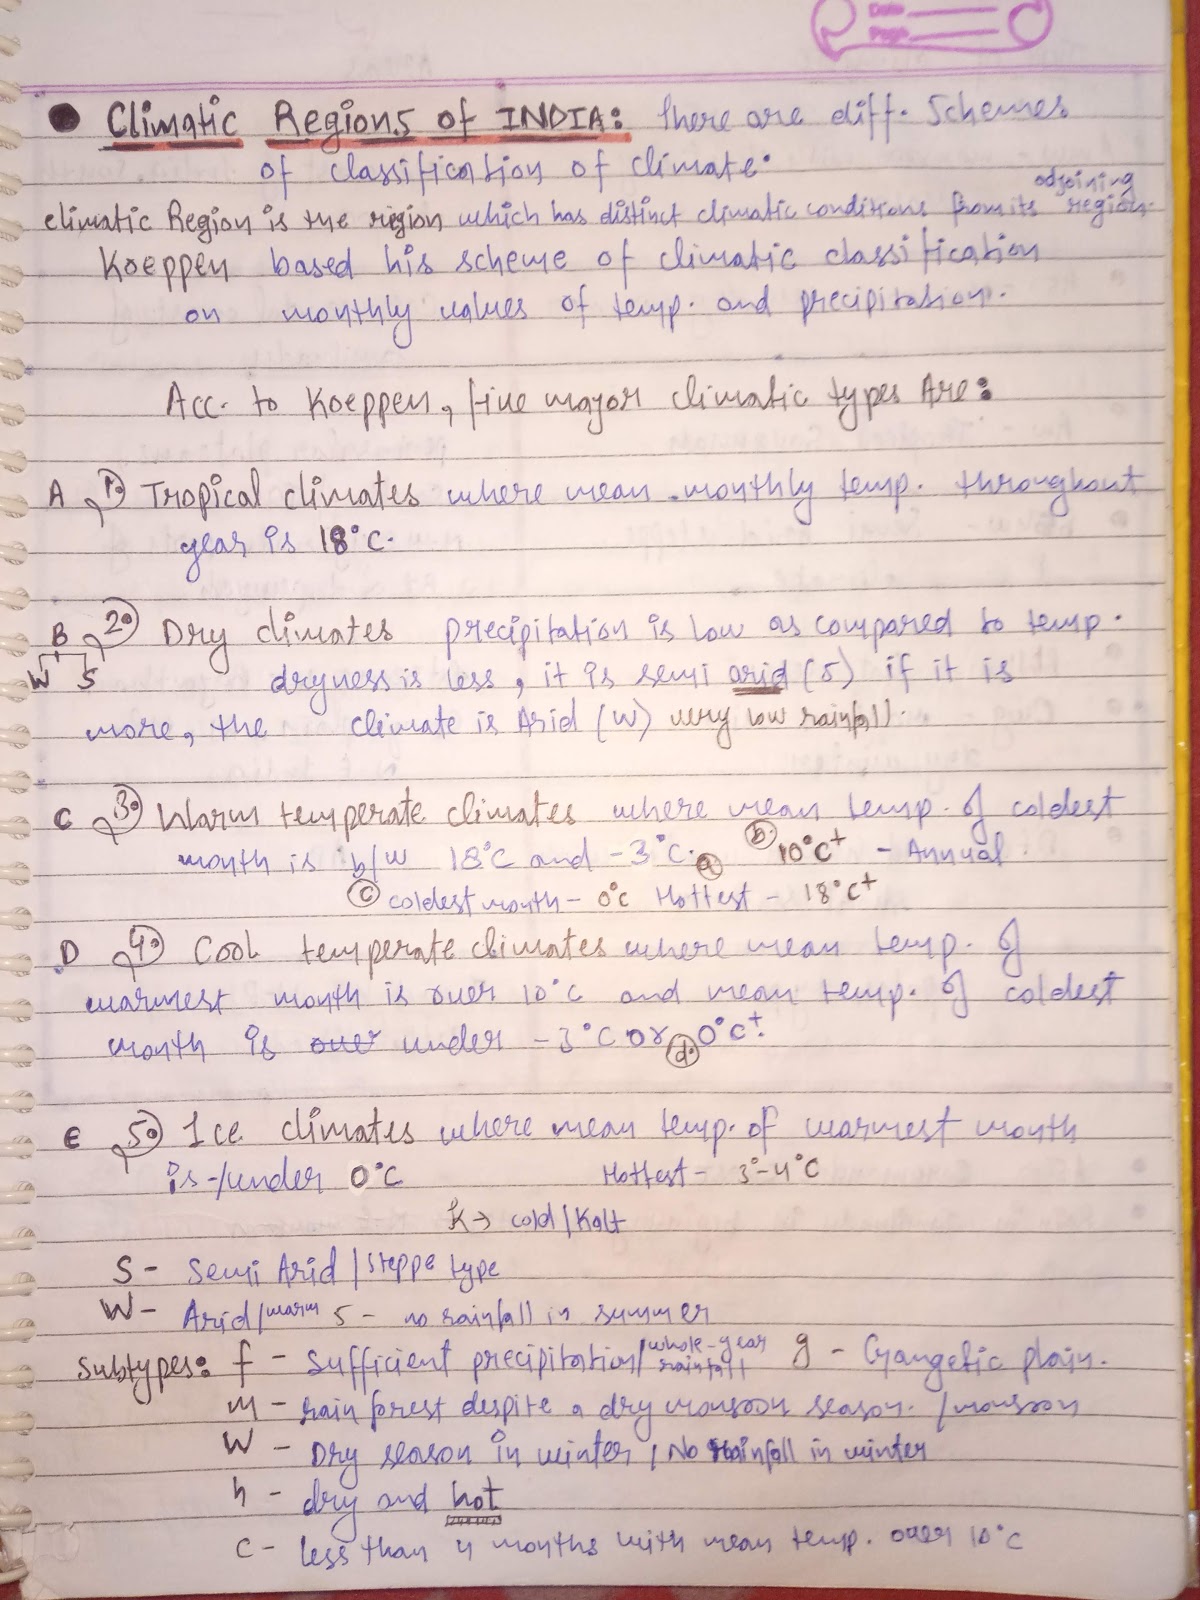 Date
Page
Climatic Regions of INDIA: There are diff. Schemes
of classification of climate.
climatic Region is the region which has distinct climatic conditions from its adjoining region.
Koeppen based his scheme of climatic classification
on monthly values of temp. and precipitation.
Acc. to Koeppen, five major climatic types Are:
A 1. Tropical climates where mean monthly temp. throughout
year is 18°C.
B 2. Dry climates precipitation is low as compared to temp.
W S dryness is less, it is semi arid (S) if it is
more, the climate is Arid (W) very low rainfall.
C 3. Warm temperate climates where mean temp. of coldest
month is b/w 18°C and -3°C. a b. 10°C+ - Annual
c coldest month - 0°C Hottest - 18°C+
D 4. Cool temperate climates where mean temp. of
warmest month is over 10°C and mean temp. of coldest
month is over under -3°C or d. 0°C+
E 5. Ice climates where mean temp. of warmest month
is -/under 0°C Hottest - 3°-4°C
K → cold/Kalt
S - Semi Arid/steppe type
W - Arid/warm S - no rainfall in summer
Subtypes: f - sufficient precipitation/whole-year rainfall g - Gangetic plain.
m - rain forest despite a dry monsoon season. /monsoon
W - Dry season in winter / No rainfall in winter
h - dry and hot
C - less than 4 months with mean temp. over 10°C